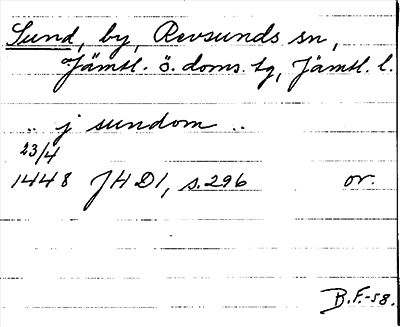 Sund, by, Revsunds sn,
Jämtl. ö. doms. tg, Jämtl. l.
.. j sundom ..
23/4
1448 JHD1, s.296 or.
B.F.-58.